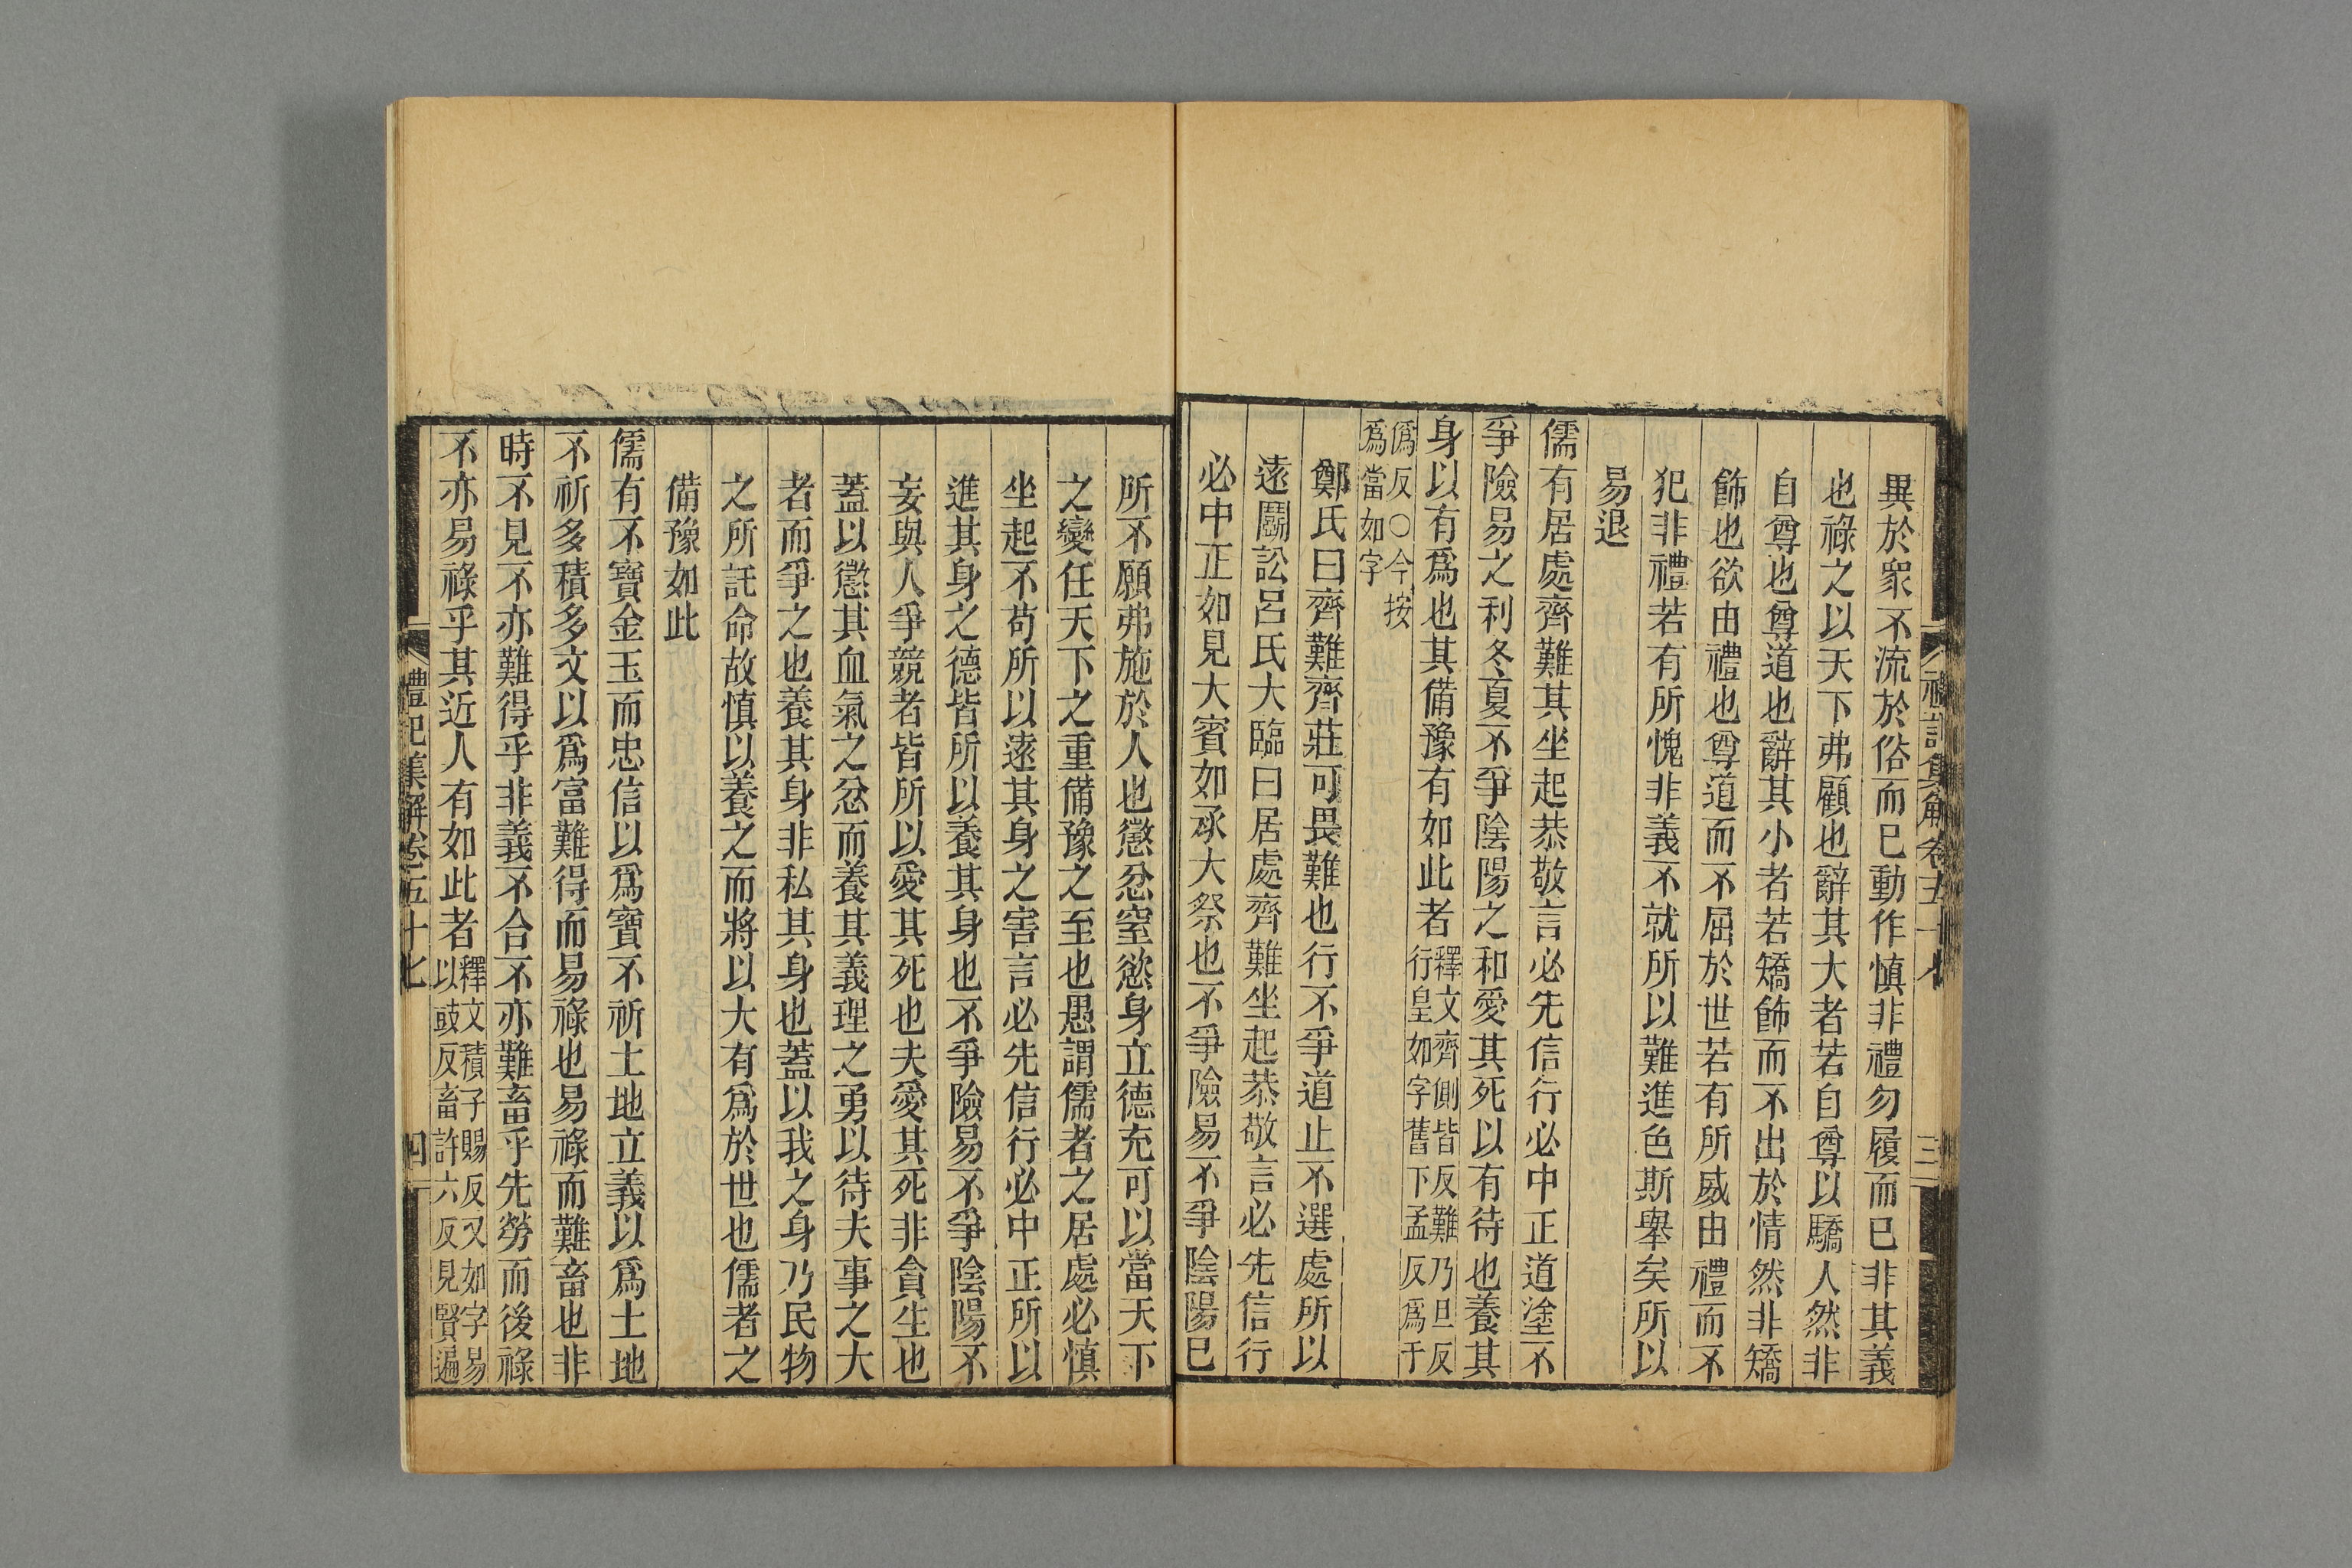 異於衆不流於俗而已動作慎非禮勿履而已非其義
也祿之以天下弗顧也辭其大者若自尊以驕人然非
自尊也尊道也辭其小者若矯飾而不出於情然非矯
飾也欲由禮也尊道而不屈於世若有所威由禮而不
犯非禮若有所愧非義不就所以難進色斯舉矣所以
易退
儒有居處齊難其坐起恭敬言必先信行必中正道塗不
爭險易之利冬夏不爭陰陽之和愛其死以有待也養其
身以有爲也其備豫有如此者釋文齊側皆反難乃旦反行皇如字舊下孟反爲于
僞反○今按爲當如字
鄭氏曰齊難齊莊可畏難也行不爭道止不選處所以
遠鬭訟呂氏大臨曰居處齊難坐起恭敬言必先信行
必中正如見大賓如承大祭也不爭險易不爭陰陽已
所不願弗施於人也懲忿窒慾身立德充可以當天下
之變任天下之重備豫之至也愚謂儒者之居處必慎
坐起不苟所以遠其身之害言必先信行必中正所以
進其身之德皆所以養其身也不爭險易不爭陰陽不
妄與人爭競者皆所以愛其死也夫愛其死非貪生也
蓋以懲其血氣之忿而養其義理之勇以待夫事之大
者而爭之也養其身非私其身也蓋以我之身乃民物
之所託命故慎以養之而將以大有爲於世也儒者之
備豫如此
儒有不寶金玉而忠信以爲寶不祈土地立義以爲土地
不祈多積多文以爲富難得而易祿也易祿而難畜也非
時不見不亦難得乎非義不合不亦難畜乎先勞而後祿
不亦易祿乎其近人有如此者釋文積子賜反又如字易以豉反畜許六反見賢遍
禮記集解卷五十七
四